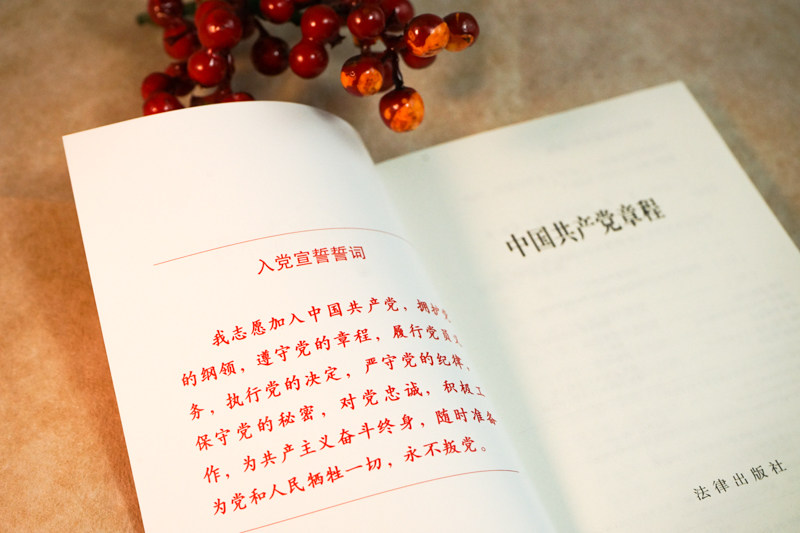 入党宣誓誓词
我志愿加入中国共产党，拥护党
的纲领，遵守党的章程，履行党员义
务，执行党的决定，严守党的纪律，
保守党的秘密，对党忠诚，积极工
作，为共产主义奋斗终身，随时准备
为党和人民牺牲一切，永不叛党。
中国共产党章程
法律出版社